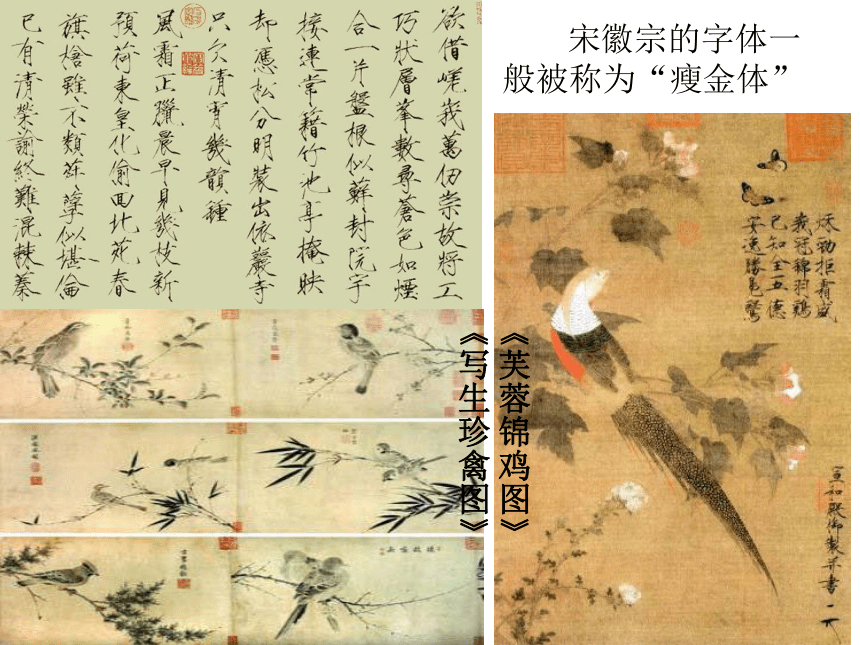 宋徽宗的字体一
般被称为“瘦金体”
欲借嵯峨萬仞崇故將工
巧狀層峯數尋蒼色如煙
合一片盤根似蘚封院宇
接連常籍竹池亭掩映
却憑松分明裝出依巖寺
只欠清宵幾韻鍾
風霜正臘晨早見幾枝新
預荷東皇化偷回北苑春
旗槍雖不類荈孽似堪倫
已有清榮諭終難混棘蓁
《写生珍禽图》
《芙蓉锦鸡图》
秋勁拒霜盛
峩冠錦羽鷄
已知全五德
安逸勝鳧鷖
宣和殿御製并書